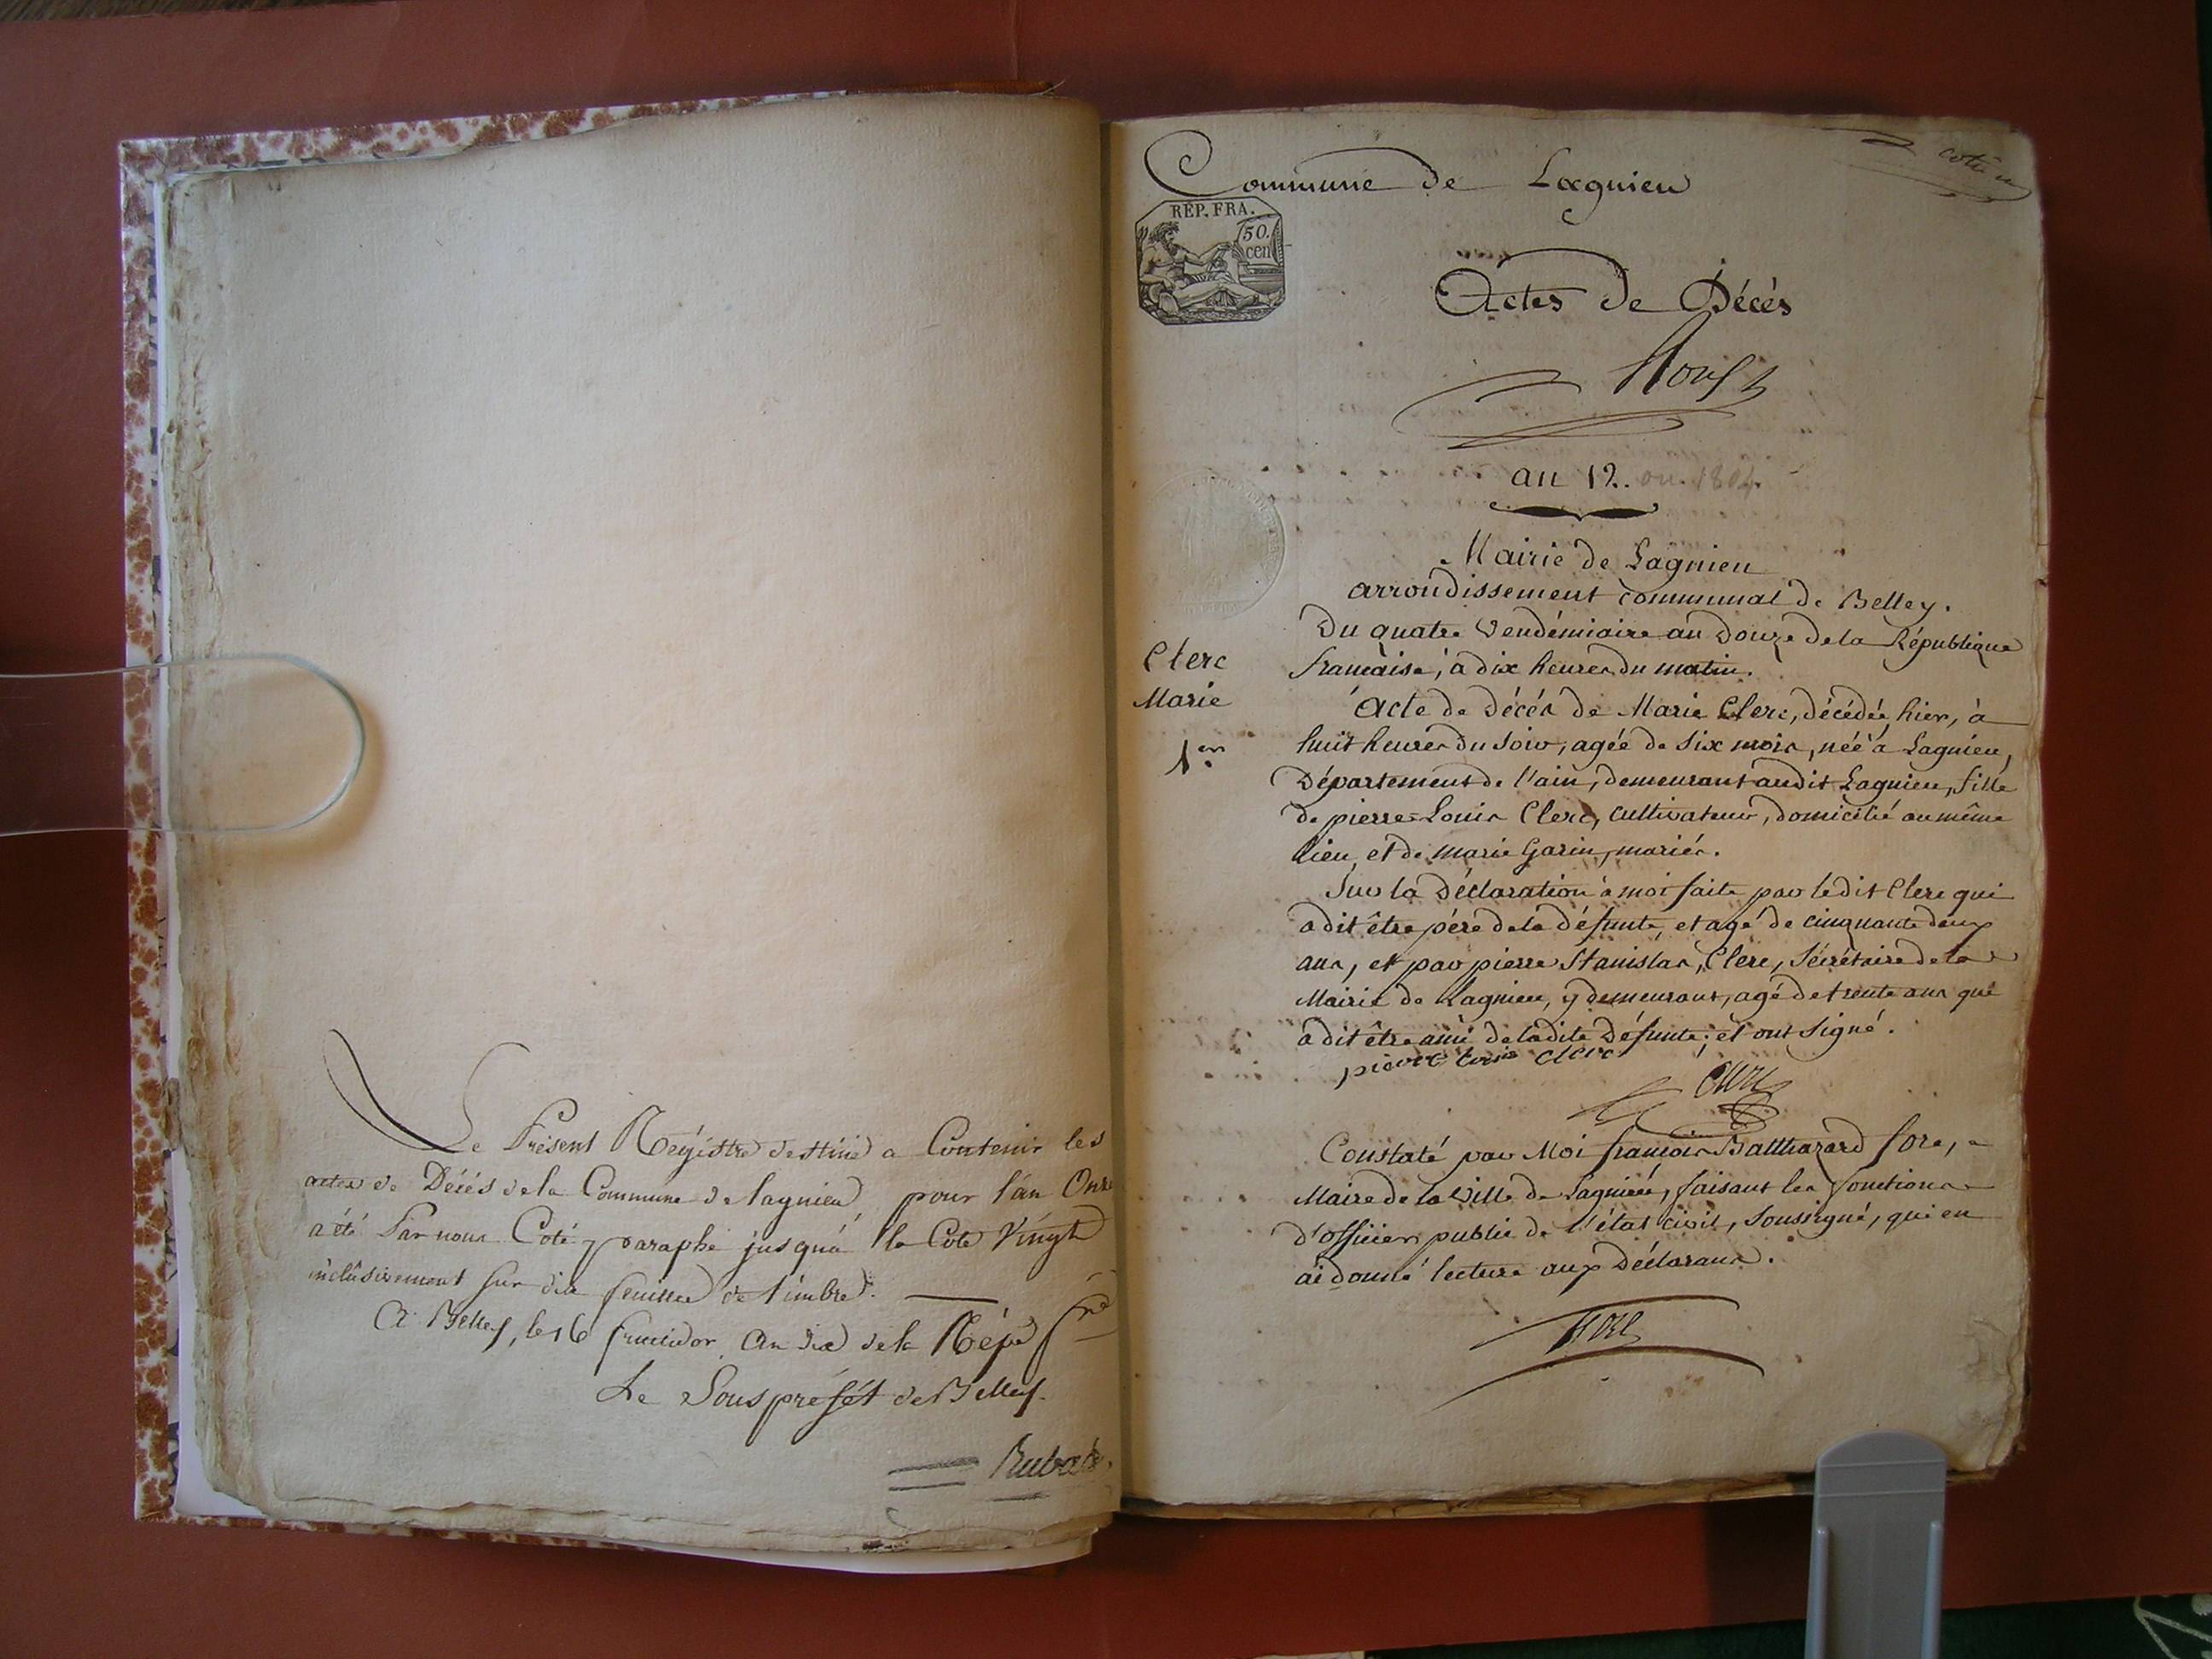 Le Présent Registre destiné a Contenir les
actes de Décès de la Commune de lagnieu pour l'an Onze
a été Par nous Coté & paraphé jusqu'à la Cote Vingt
inclusivement sur dix feuilles de timbre.
A Belley, le 16 fructidor an dix de la Répe fse
Le Souspréfét de Belley.
Commune de Lagnieu
coté un
RÉP. FRA.
50.
cen
Actes de Décès
an 12. ou 1804.
Mairie de Lagnieu
arrondissement communal de Belley.
Du quatre Vendémiaire an Douze de la République
française, à dix heures du matin.
Clerc
Marie
1er
Acte de Décès de Marie Clerc, décédée hier, à
huit heures du soir, agée de six mois, née à Lagnieu,
Département de l'ain, demeurant audit Lagnieu, fille
de pierre-Louis Clerc, cultivateur, domicilié au même
lieu, et de marie Garin, mariés.
Sur la Déclaration à moi faite par le dit Clerc qui
a dit être père de la défunte, et agé de cinquante deux
ans, et par pierre Stanislas, Clerc, Sécrétaire de la
Mairie de Lagnieu, y demeurant, agé de trente ans qui
a dit être ami de la dite Défunte; et ont signé.
pierre louis clerc
Clerc
Constaté par Moi françois Balthazard fore,
Maire de la Ville de Lagnieu, faisant les fonctions
d'officier public de l'état civil, Soussigné, qui en
ai donné lecture aux Déclarans.
fore